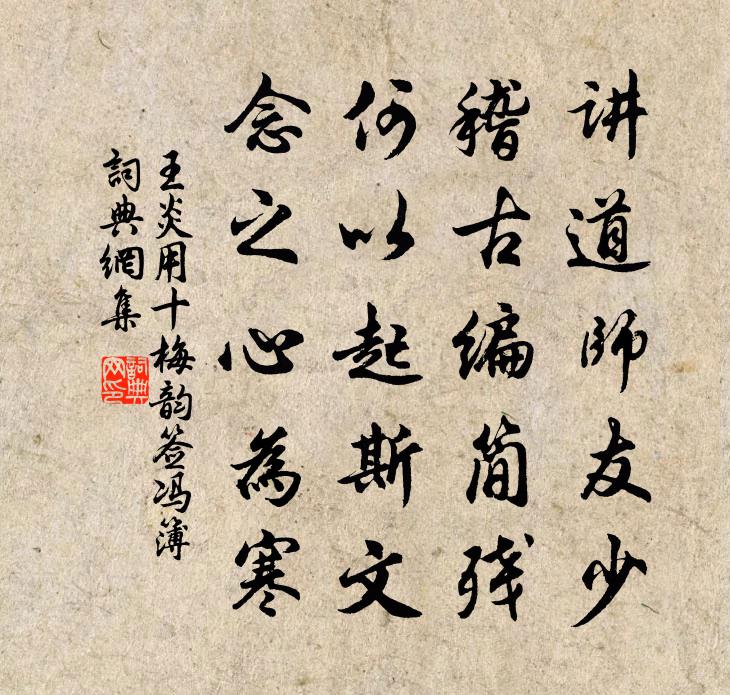 讲道师友少
稽古编简残
何以起斯文
念之心為寒
王炎用十梅韵签冯簿
詞典網集
詞典網印